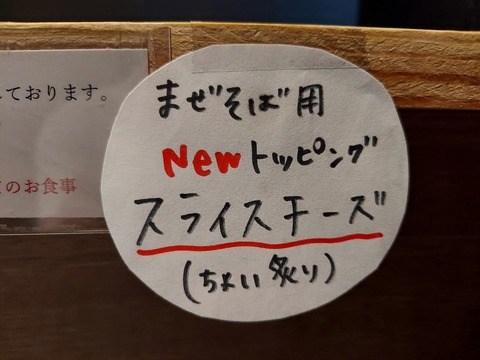 ております。
のお食事
まぜそば用
Newトッピング
スライスチーズ
(ちょい炙り)